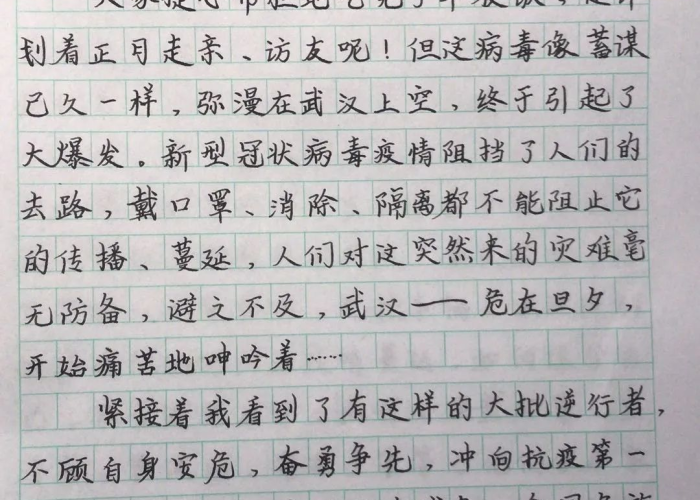 划着正月走亲、访友呢！但这病毒像蓄谋
已久一样，弥漫在武汉上空，终于引起了
大爆发。新型冠状病毒疫情阻挡了人们的
去路，戴口罩、消除、隔离都不能阻止它
的传播、蔓延，人们对这突然来的灾难毫
无防备，避之不及，武汉——危在旦夕，
开始痛苦地呻吟着……
紧接着我看到了有这样的大批逆行者，
不顾自身安危，奋勇争先，冲向抗疫第一